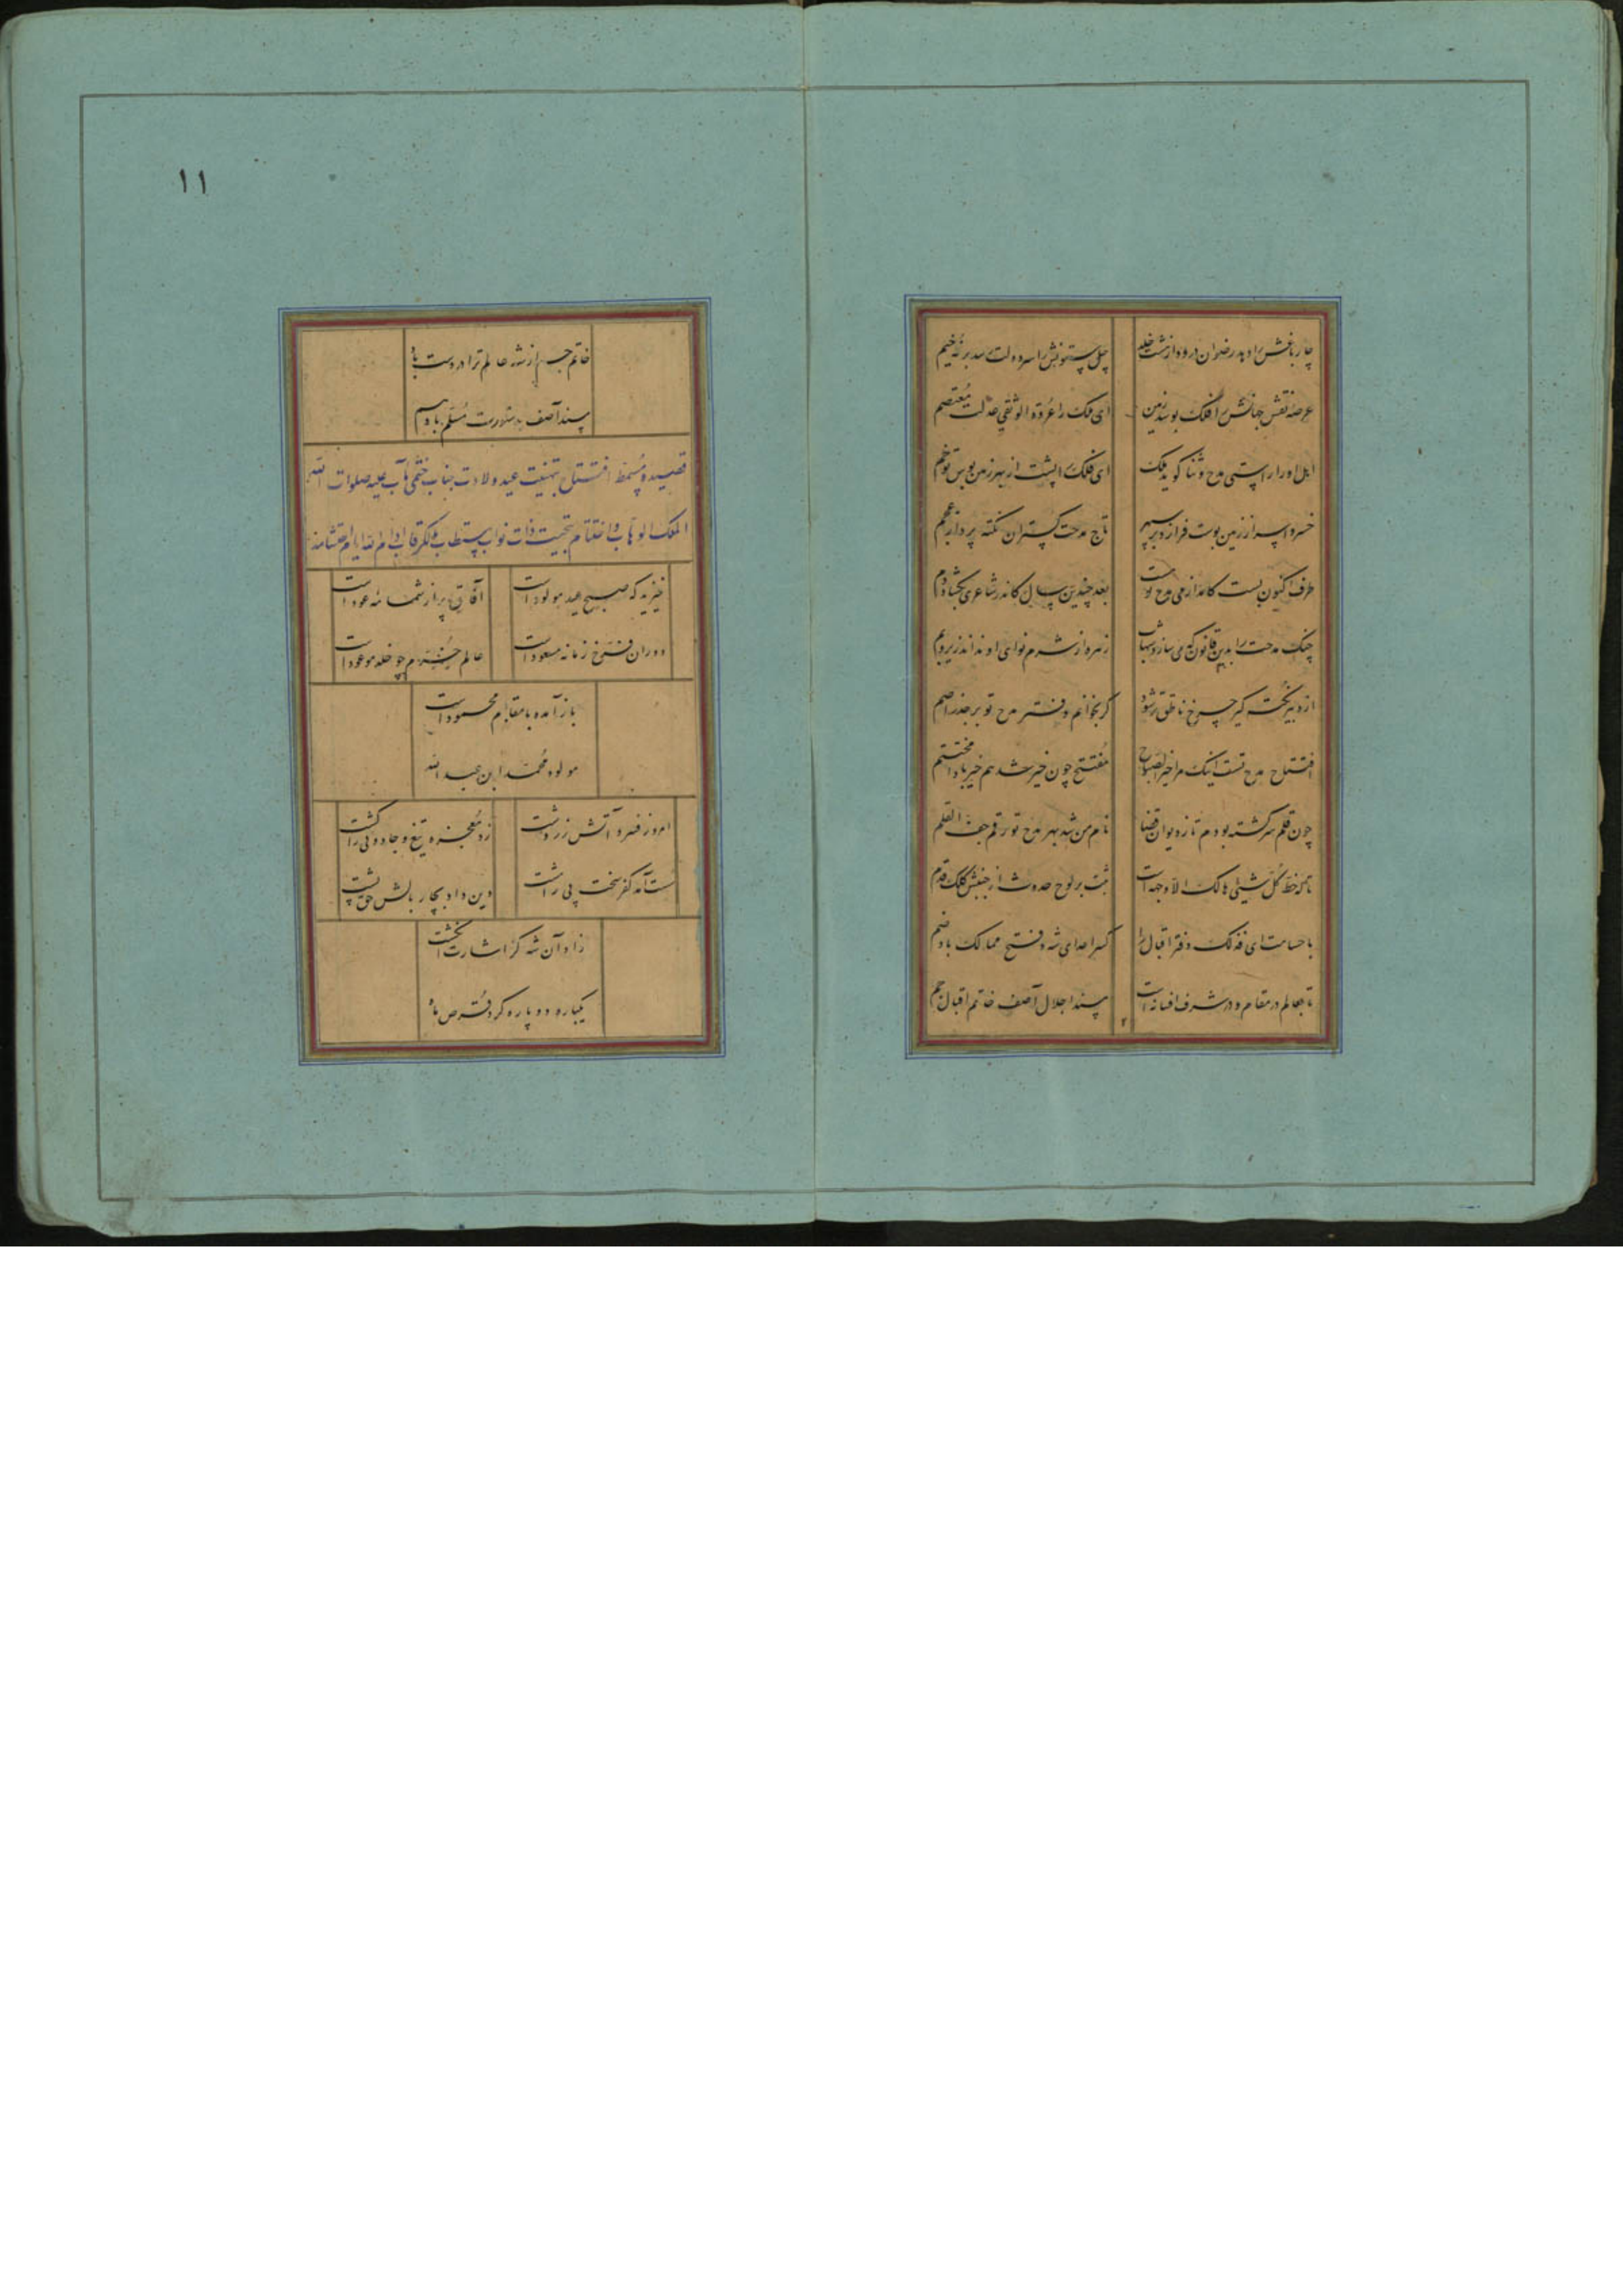 چار باغش را دهد رضوان درود از هشت خلد
چل ستونش را سرو دولت سدیر نه خیم
عرصه نقش جهانش را فلک بوسد زمین
ای ملک را عروة الوثقی عدلت معتصم
اهل او را راستی مدح و ثنا گوید ملک
ای فلک را پشت از بهر زمین بوس تو خم
خسروا سر از زمین بوست فرازد بر سپهر
تاج مدحت گستران نکته پرداز عجم
طرف اکنون بست کاغذ از پی مدح تو است
بعد چندین سال کاندر شاعری بگشاد دم
چنگ مدحت را بدین قانون که می سازد شهاب
زهره از شرم نوای او نداند زیر و بم
از دبیر نکته گیر چرخ ناطق تر شود
گر بخوانم دفتر مدح تو بر جذر اصم
افتتاح مدح تست اینک مرا خیر الصباح
مفتتح چون خیر شد هم خیر بادا مختتم
چون قلم سرگشته بودم تا ز دیوان قضا
نام من شد بهر مدح تو رقم جف القلم
تا که خط کل شیئی هالک الا وجهه است
ثبت بر لوح حدوث از جنبش کلک قدم
با حسامت ای فذلک دفتر اقبال را
کسر اعدای شه و فتح ممالک باد ضم
تا بعالم در مقام و در شرف افسانه است
مسند اجلال آصف خاتم اقبال جم
۱۱
خاتم جم از شه عالم ترا در دست باد
مسند آصف بدستوریت مسلم باد هم
قصیده مسمط افتتاح بتهنیت عید ولادت جناب ختمی مآب علیه صلوات الله
الملک الوهاب و اختتام بتحیت ذات نواب مستطاب مالک رقاب ادام الله ایام احتشامه
خیزید که صبح عید مولود است
آفاق پر از شمامه عود است
دوران فرخ زمانه مسعود است
عالم خرم چو خلد موعود است
باز آمده با مقام محمود است
مولود محمد ابن عبد الله
امروز فسرد آتش زردشت
زد معجزه تیغ و جادوئی را کشت
سست آمد کفر سخت پی را مشت
دین داد بچار بالش حق پشت
زاد آن شه کز اشارت انگشت
یکباره دو پاره کرد قرص ماه